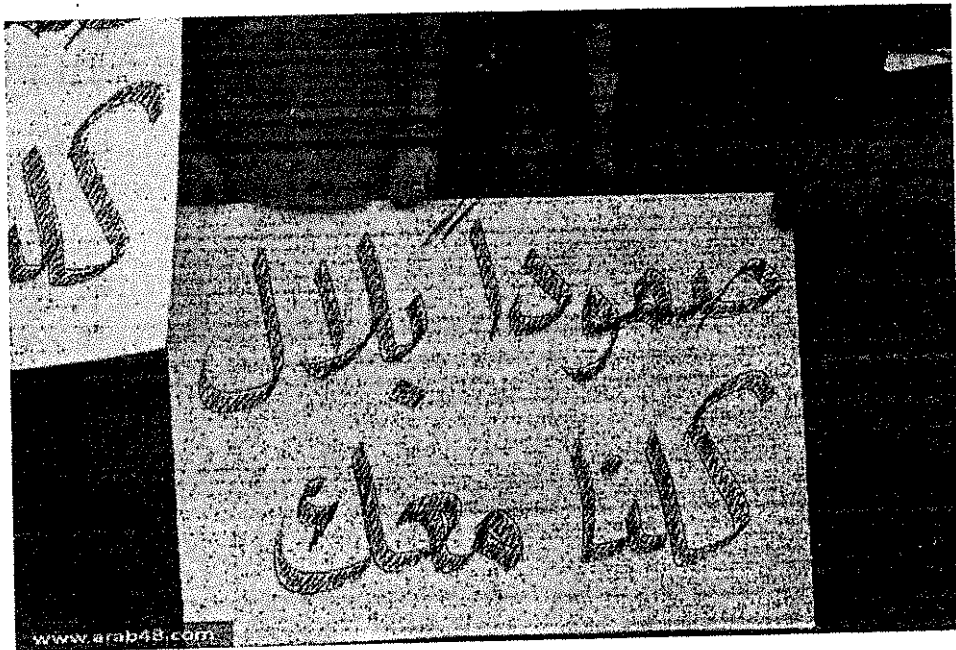 صمودا بلال
كلنا معك
www.arab48.com